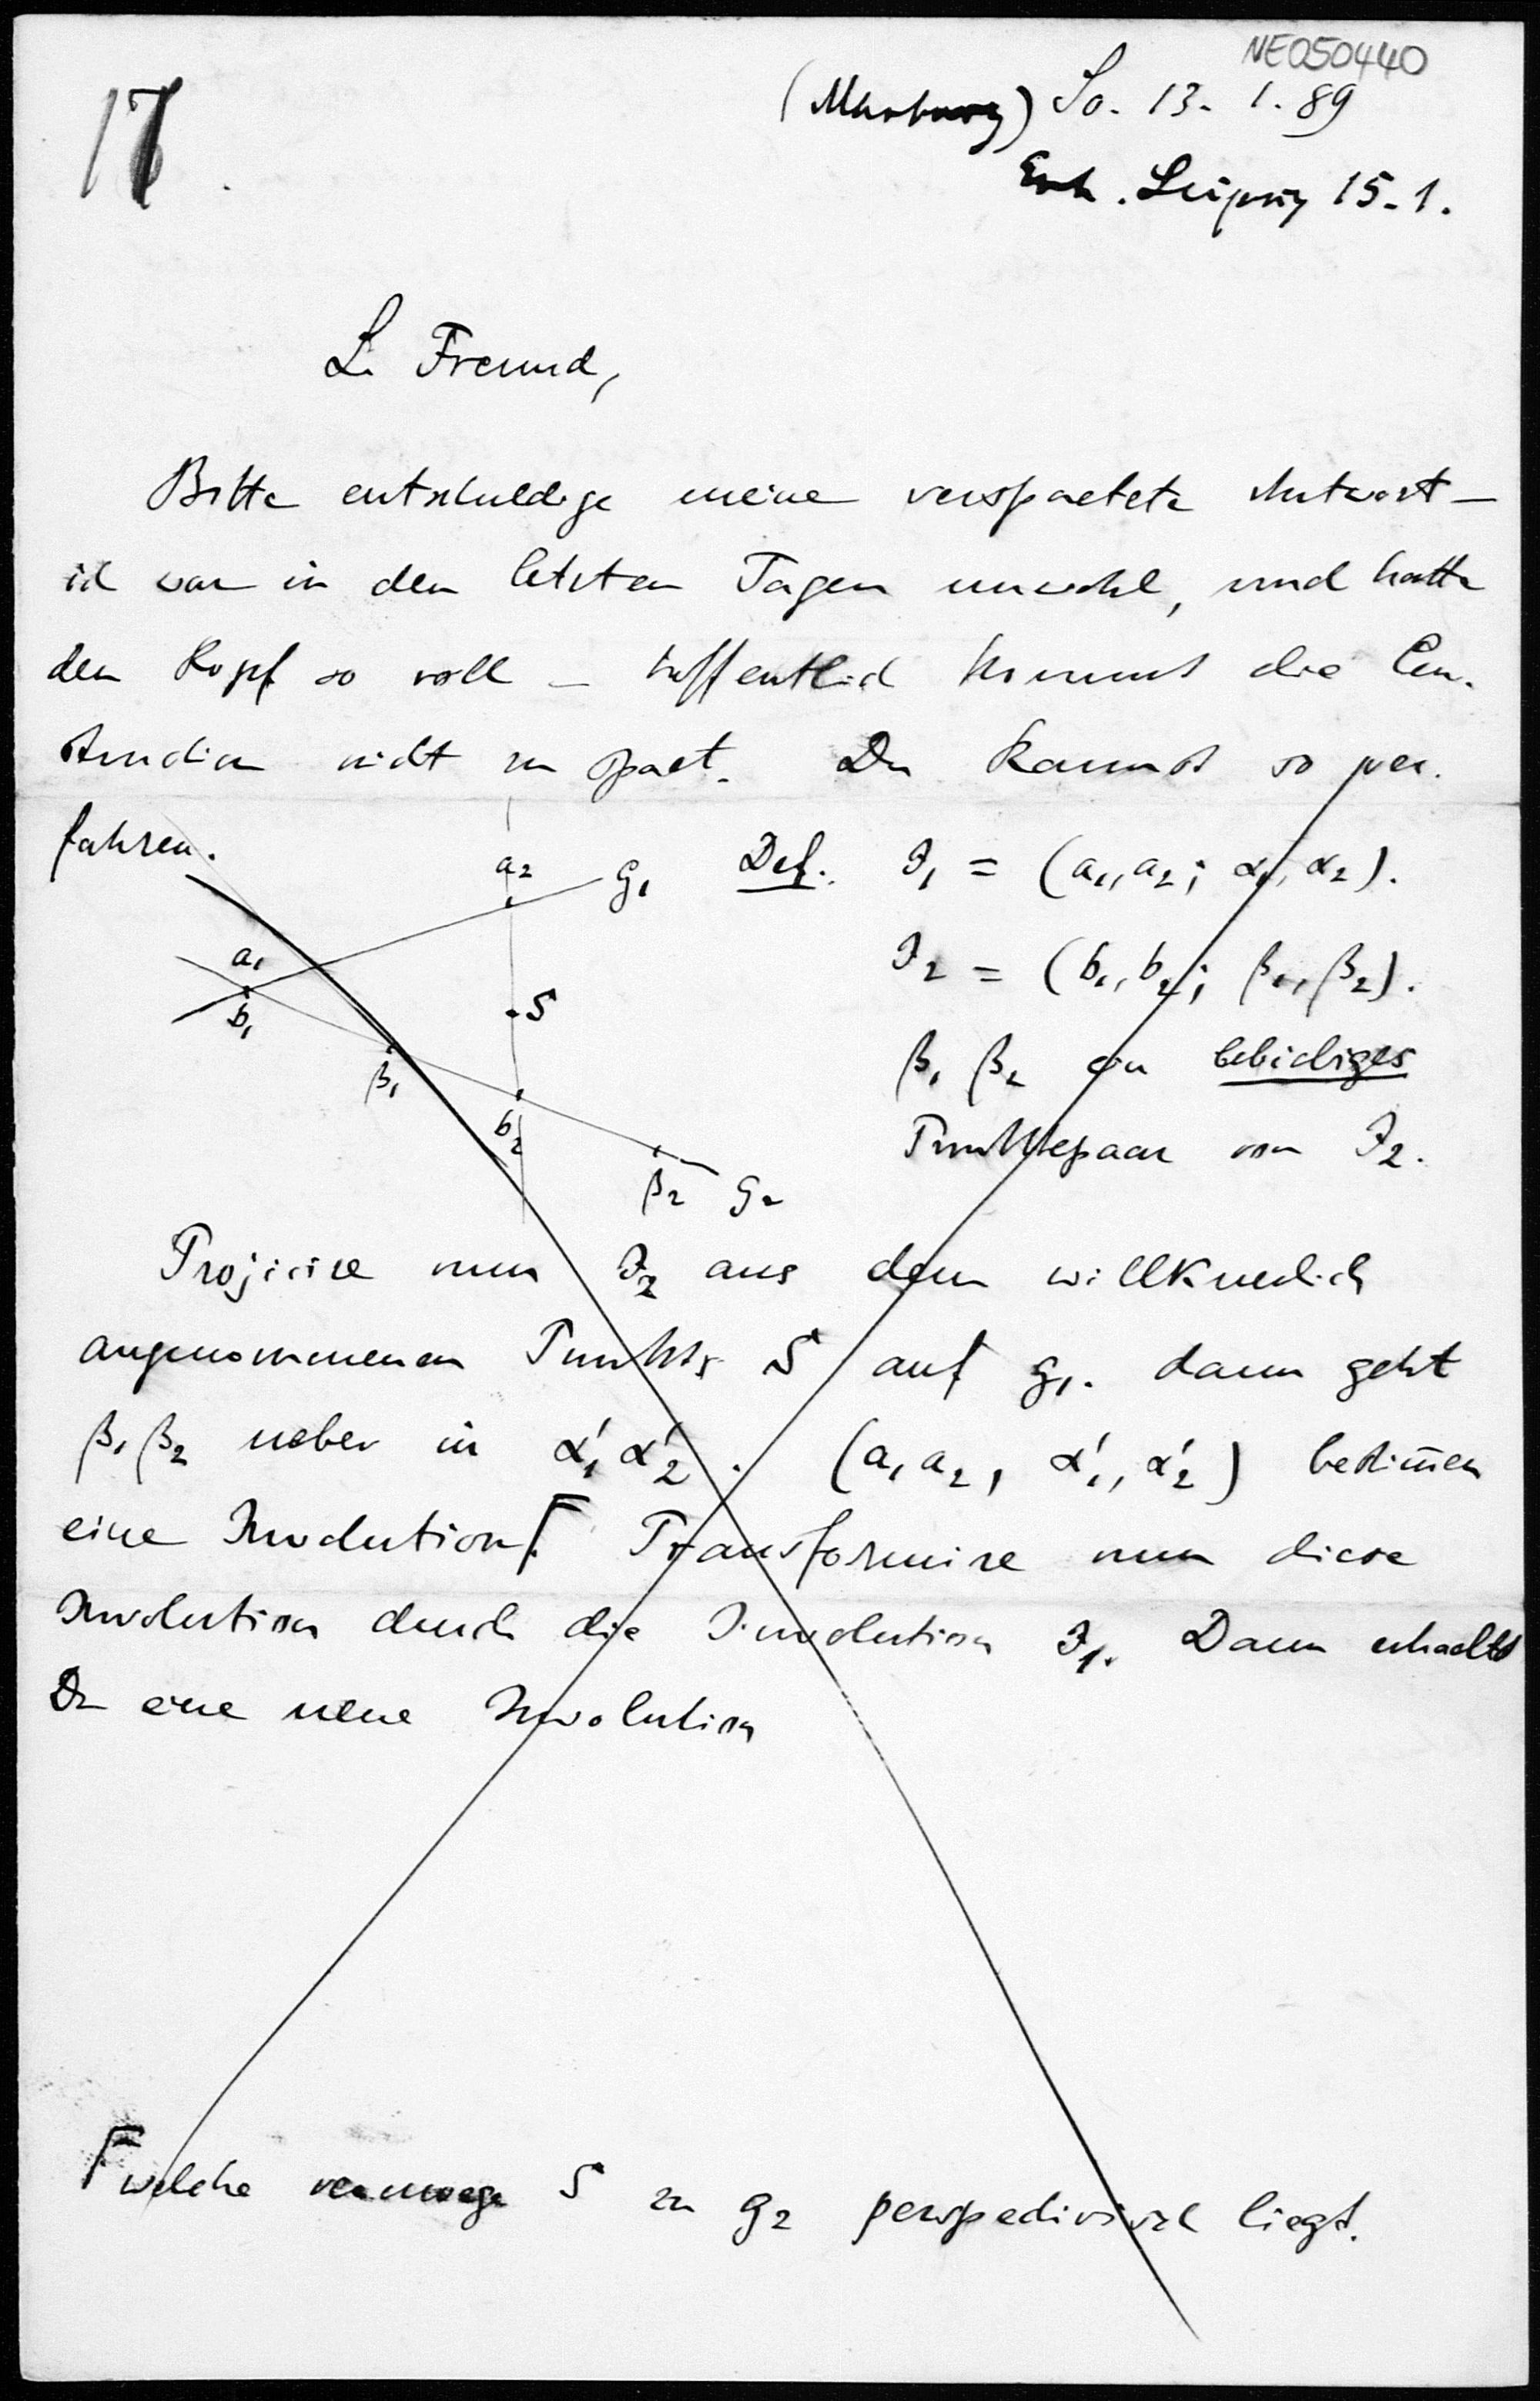 NE050440
17
(Marburg) So. 13. 1. 89
Erh. Leipzig 15.1.
L. Freund,
Bitte entschuldige meine verspaetete Antwort –
ich war in den letzten Tagen unwohl, und hatte
den Kopf so voll – hoffentlich kommt die Con-
struction nicht zu spaet. Du kannst so ver-
fahren.
a2 g1 Def. J1 = (a1, a2; α1, α2).
a1 b1 S J2 = (b1, b2; β1, β2).
β1 b2 β1 β2 ein beliebiges
β2 g2 Punktepaar von J2.
Projicire nun J2 aus dem willkuerlich
angenommenen Punkte S auf g1. dann geht
β1 β2 ueber in α'1 α'2. (a1 a2, α'1, α'2) bestim̄en
eine Involution Γ. Transformire nun diese
Involution durch die Involution J1. Dann erhaelts
Du eine neue Involution
Γ welche vermoege S zu g2 perspectivisch liegt.